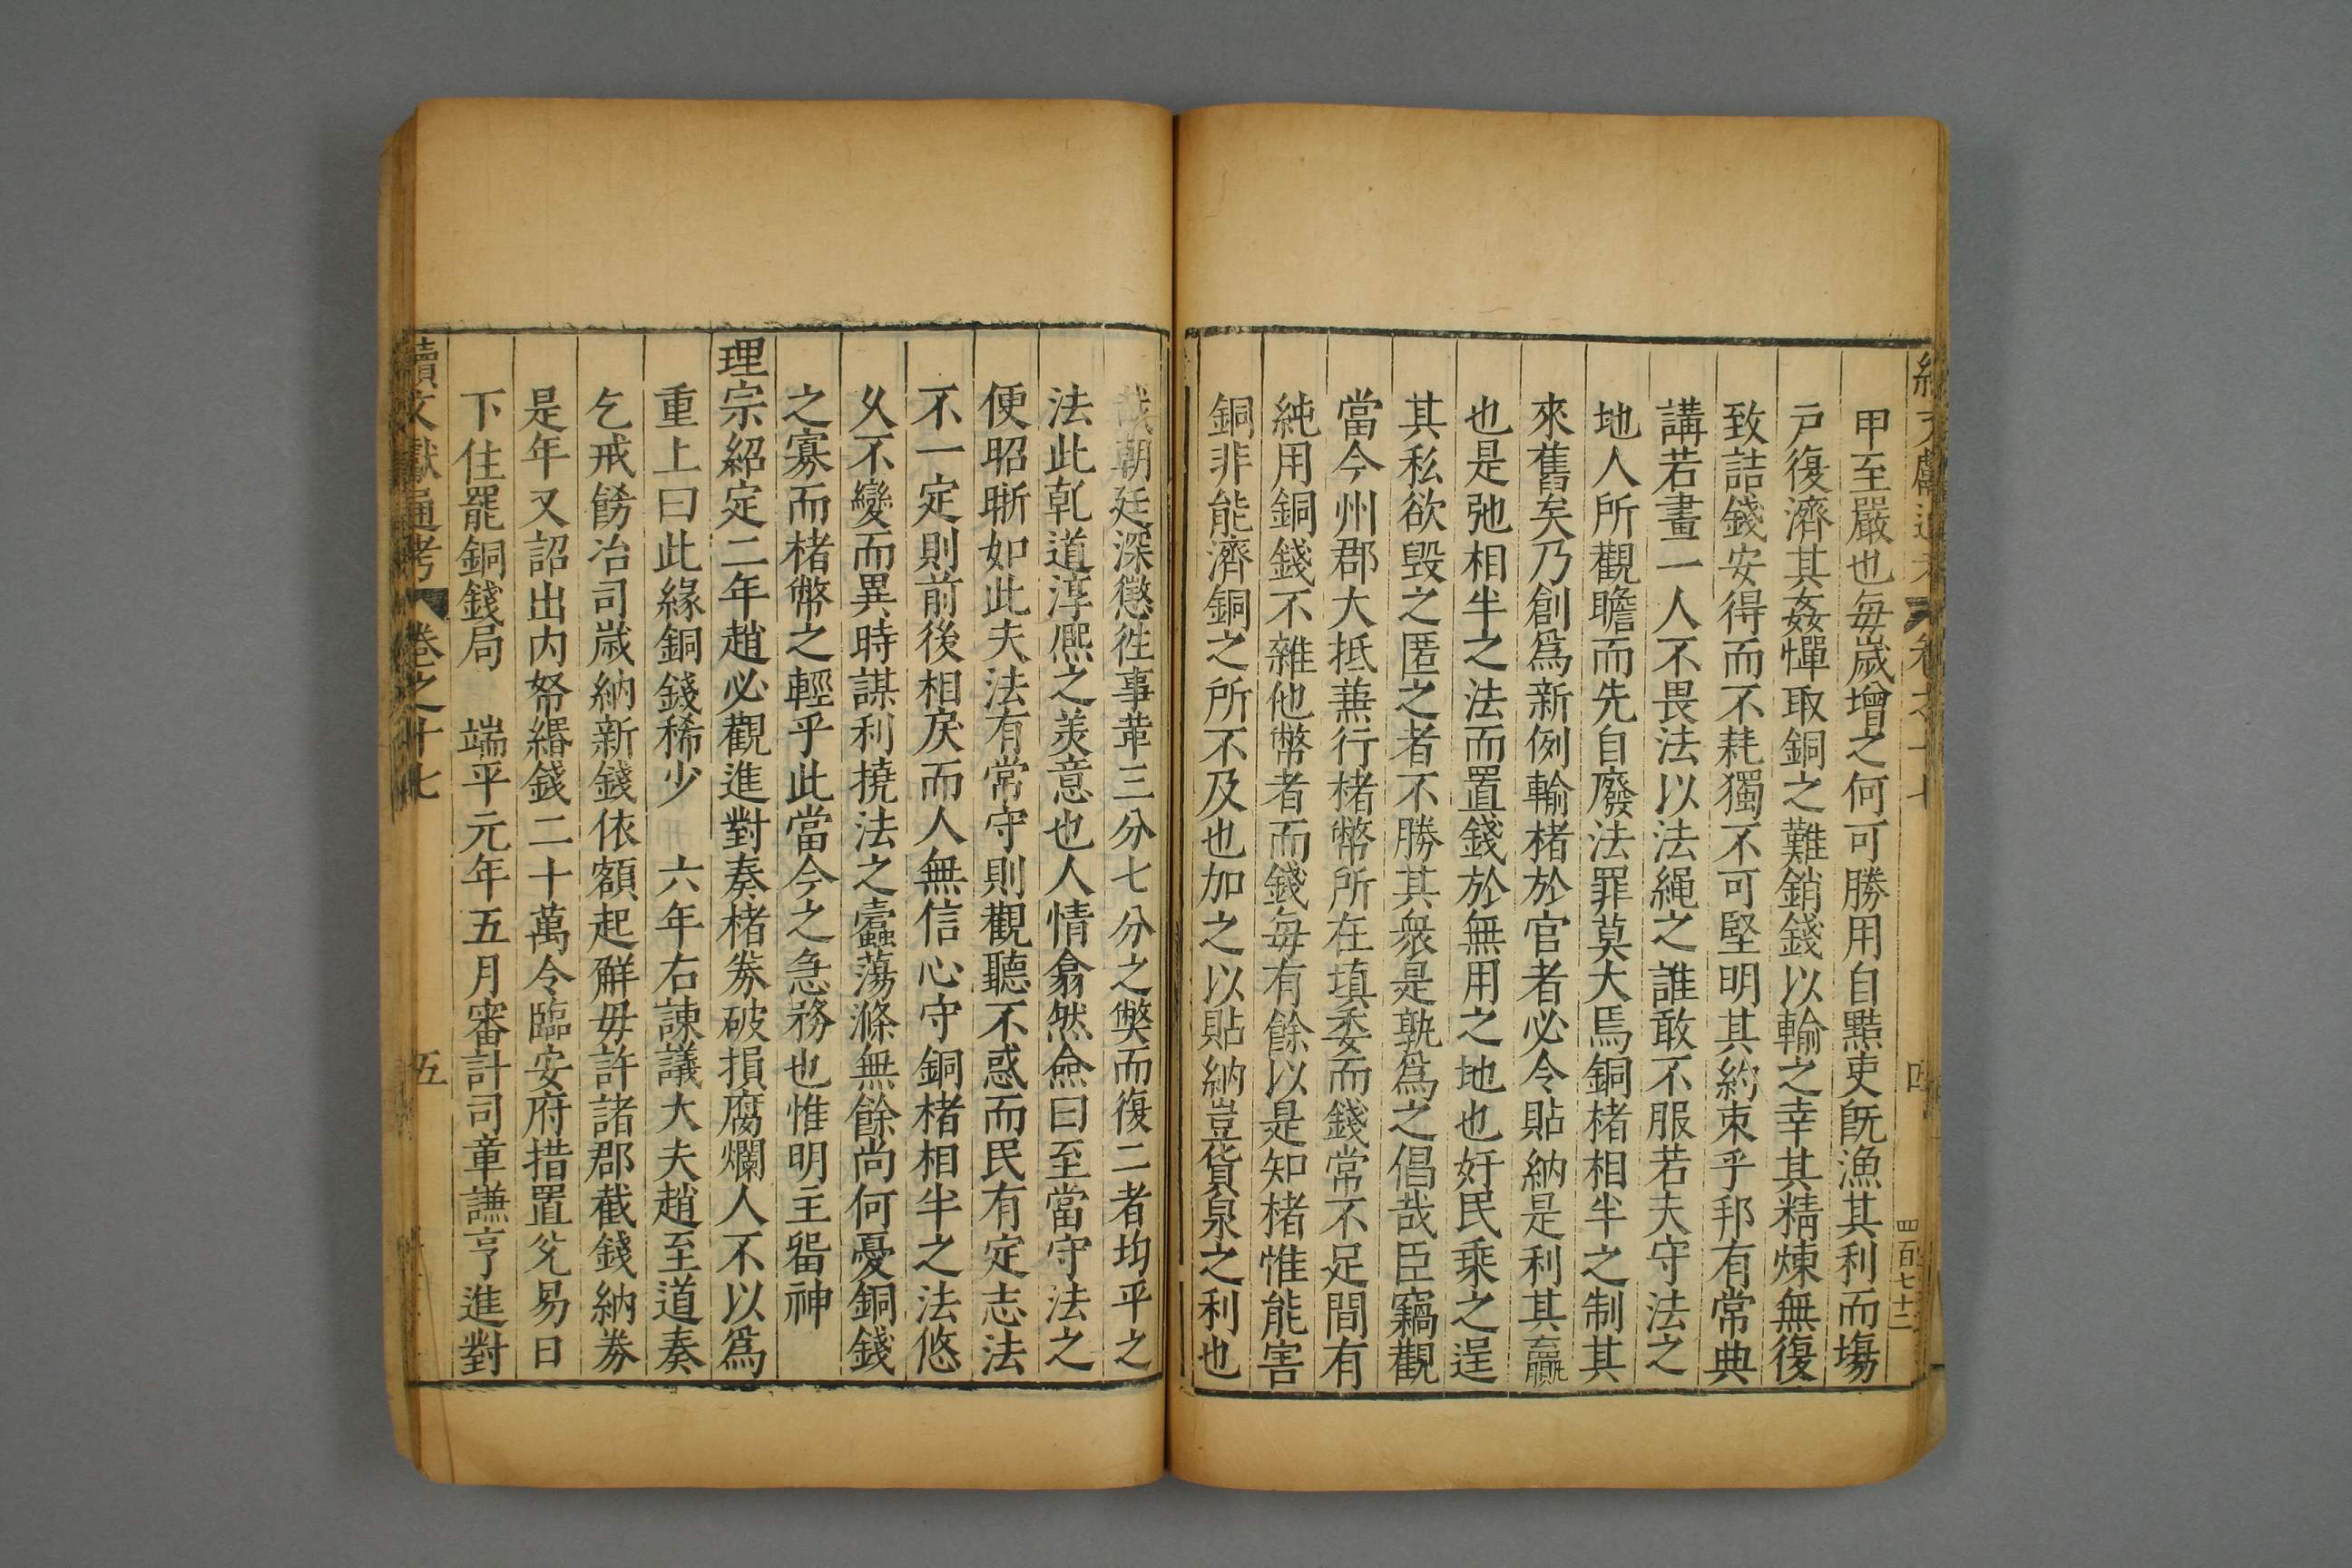 續文獻通考 卷之十七 四 四百七十三
甲至嚴也毎歲增之何可勝用自㸃吏旣漁其利而塲
戸復濟其姦憚取銅之難銷錢以輸之幸其精煉無復
致詰錢安得而不耗獨不可堅明其約束乎邦有常典
講若畫一人不畏法以法䋲之誰敢不服若夫守法之
地人所觀瞻而先自廢法罪莫大焉銅楮相半之制其
來舊矣乃創爲新例輸楮於官者必令貼納是利其贏
也是弛相半之法而置錢於無用之地也奸民乘之逞
其私欲毀之匿之者不勝其衆是孰爲之倡哉臣竊觀
當今州郡大抵蕪行楮幣所在填委而錢常不足間有
純用銅錢不雜他幣者而錢每有餘以是知楮惟能害
銅非能濟銅之所不及也加之以貼納豈貨泉之利也
哉朝廷深懲徃事革三分七分之獘而復二者均平之
法此乹道淳熈之羙意也人情翕然僉曰至當守法之
便昭晣如此夫法有常守則觀聽不惑而民有定志法
不一定則前後相戾而人無信心守銅楮相半之法悠
乆不變而異時謀利撓法之蠹蕩滌無餘尚何憂銅錢
之寡而楮幣之輕乎此當今之急務也惟明主畱神
理宗紹定二年趙必觀進對奏楮劵破損腐爛人不以爲
重上曰此緣銅錢稀少 六年右諫議大夫趙至道奏
乞戒餝冶司歲納新錢依額起觧毋許諸郡截錢納劵
是年又詔出内帑緡錢二十萬令臨安府措置兊易日
下住罷銅錢局 端平元年五月審計司章謙亨進對
續文獻通考 卷之十七 五